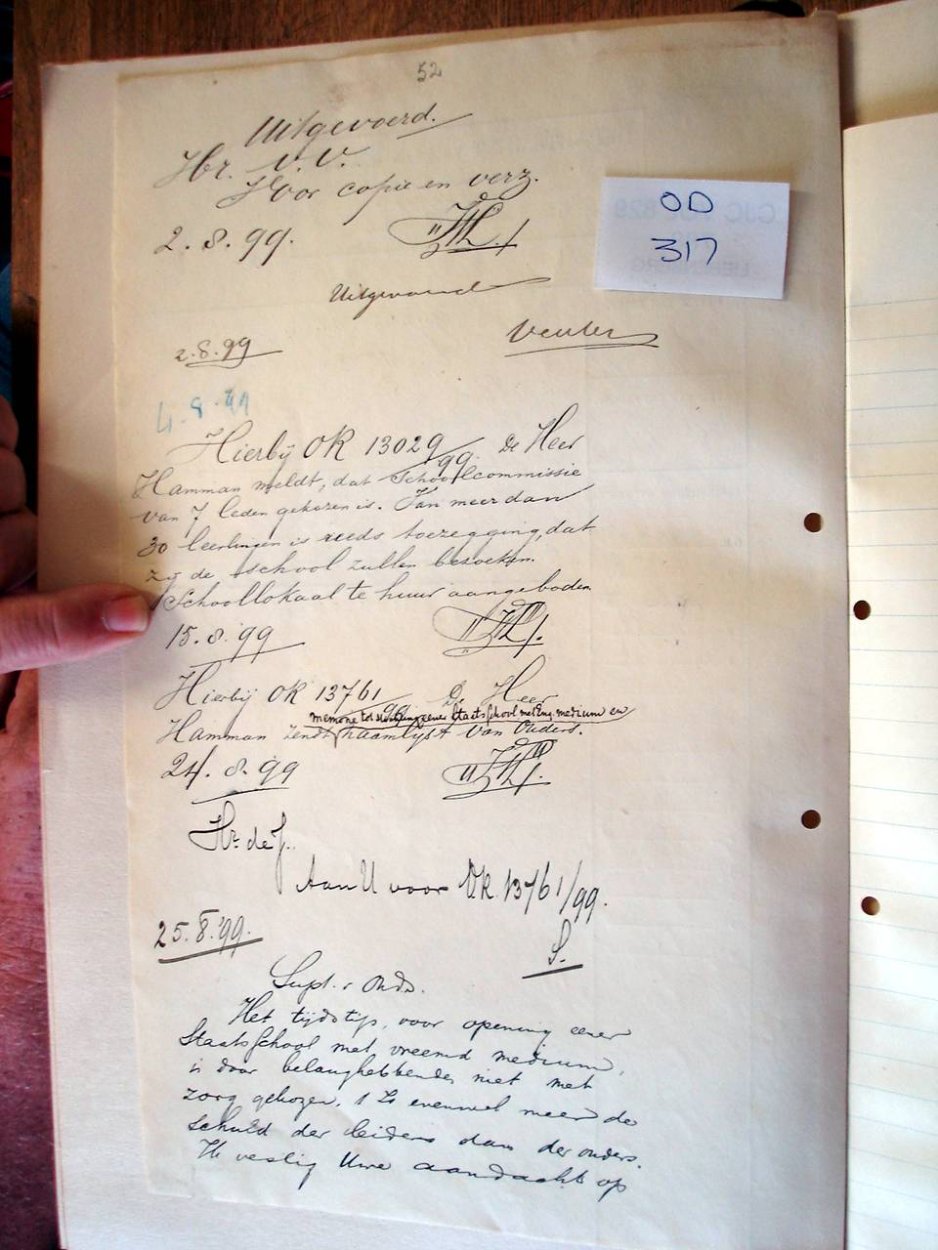 52
Uitgevoerd.
Hr. V. V.
Voor copie en verz.
2.8.99.
OD
317
Uitgevoerd
Venter
2.8.99
4.8.99
Hierbij OR 13029/99. De Heer
Hamman meldt, dat Schoolcommissie
van 7 leden gekozen is. Van meer dan
30 leerlingen is reeds toezegging, dat
zij de school zullen bezoeken.
Schoollokaal te huur aangeboden
15.8.99
Hierbij OR 13761/99 De Heer
memorie tot stichting eener Staatsschool met Eng. medium en
Hamman zendt naamlijst van Ouders.
24.8.99
Hr. de J.
Aan U voor OR. 13761/99.
25.8.'99.
S.
Supt. v Onds.
Het tijdstip, voor opening eener
Staatsschool met vreemd medium,
is door belanghebbenden niet met
zorg gekozen. Is evenwel meer de
schuld der leiders dan der ouders.
Ik vestig Uwe aandacht op